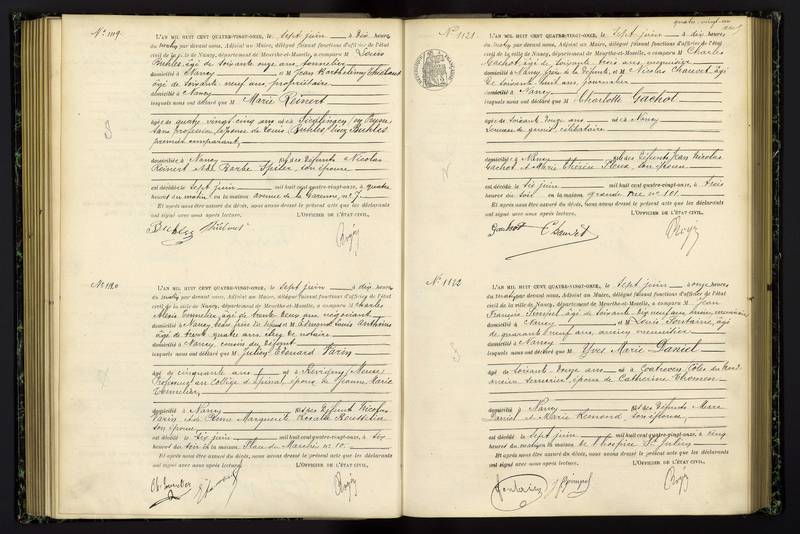 N° 1119.
L'AN MIL HUIT CENT QUATRE-VINGT-ONZE, le sept juin à dix heures
du matin par devant nous, Adjoint au Maire, délégué faisant fonctions d'officier de l'état
civil de la ville de Nancy, département de Meurthe-et-Moselle, a comparu M Louis
Buhles, âgé de soixante onze ans, tonnelier
domicilié à Nancy et M Jean Barthélemy
âgé de soixante neuf ans, propriétaire
domicilié à Nancy
lesquels nous ont déclaré que M Marie Reinert
âgée de quatre vingt cinq ans née à en Prusse,
sans profession, épouse de Louis Buhles
premier comparant,
domiciliée à Nancy fille des défunts Nicolas
Reinert et de Barbe Spiler, son épouse
est décédée le sept juin mil huit cent quatre-vingt-onze, à quatre
heures du matin en avenue de la Garenne, n° 7.
Et après nous être assuré du décès, nous avons dressé le présent acte que les déclarants
ont signé avec nous après lecture. L'OFFICIER DE L'ÉTAT CIVIL,
N° 1120
L'AN MIL HUIT CENT QUATRE-VINGT-ONZE, le sept juin à dix heures
du matin par devant nous, Adjoint au Maire, délégué faisant fonctions d'officier de l'état
civil de la ville de Nancy, département de Meurthe-et-Moselle, a comparu M Charles
Alexis Tonnelier, âgé de trente deux ans, négociant
domicilié à Nancy, beau frère du défunt et M Edmond Louis Anthoine
âgé de trente quatre ans, clerc de notaire
domicilié à Nancy, cousin du défunt
lesquels nous ont déclaré que M Julien Edouard Varin
âgé de cinquante ans né à Revigny, Meuse
Professeur au Collège d'Epinal, époux de Jeanne Marie
Tonnelier,
domicilié à Nancy fils des défunts Nicolas
Varin et de Marguerite Rosalie
son épouse
est décédé le six juin mil huit cent quatre-vingt-onze, à six
heures du soir en la maison Place du Marché n° 10.
Et après nous être assuré du décès, nous avons dressé le présent acte que les déclarants
ont signé avec nous après lecture. L'OFFICIER DE L'ÉTAT CIVIL,
quatre-vingt-un
N° 1121.
L'AN MIL HUIT CENT QUATRE-VINGT-ONZE, le sept juin, à dix heures
du matin par devant nous, Adjoint au Maire, délégué faisant fonctions d'officier de l'état
civil de la ville de Nancy, département de Meurthe-et-Moselle, a comparu M Charles
Gachot, âgé de soixante trois ans, menuisier
domicilié à Nancy, frère de la défunte, et M Nicolas Chauvet, âgé
de soixante huit ans, journalier
domicilié à Nancy
lesquels nous ont déclaré que M Charlotte Gachot
âgée de soixante douze ans née à Nancy
célibataire
domiciliée à Nancy fille des défunts Jean Nicolas
Gachot et Marie Thérèse son épouse
est décédée le six juin mil huit cent quatre-vingt-onze, à trois
heures du soir en la maison grande rue n° 101
Et après nous être assuré du décès, nous avons dressé le présent acte que les déclarants
ont signé avec nous après lecture. L'OFFICIER DE L'ÉTAT CIVIL,
Gachot Chauvet
N° 1122
L'AN MIL HUIT CENT QUATRE-VINGT-ONZE, le sept juin, à onze heures
du matin par devant nous, Adjoint au Maire, délégué faisant fonctions d'officier de l'état
civil de la ville de Nancy, département de Meurthe-et-Moselle, a comparu M Jean
François âgé de soixante dix neuf ans,
domicilié à Nancy et M Louis Fontaine, âgé
de quarante neuf ans, ancien
domicilié à Nancy
lesquels nous ont déclaré que M Yves Marie Daniel
âgé de soixante douze ans né à Côtes du Nord
ancien serrurier, époux de Catherine
domicilié à Nancy fils des défunts Marc
Daniel et Marie Remond, son épouse,
est décédé le sept juin mil huit cent quatre-vingt-onze, à cinq
heures du matin en la maison de l'hospice St Julien
Et après nous être assuré du décès, nous avons dressé le présent acte que les déclarants
ont signé avec nous après lecture. L'OFFICIER DE L'ÉTAT CIVIL,
Fontaine